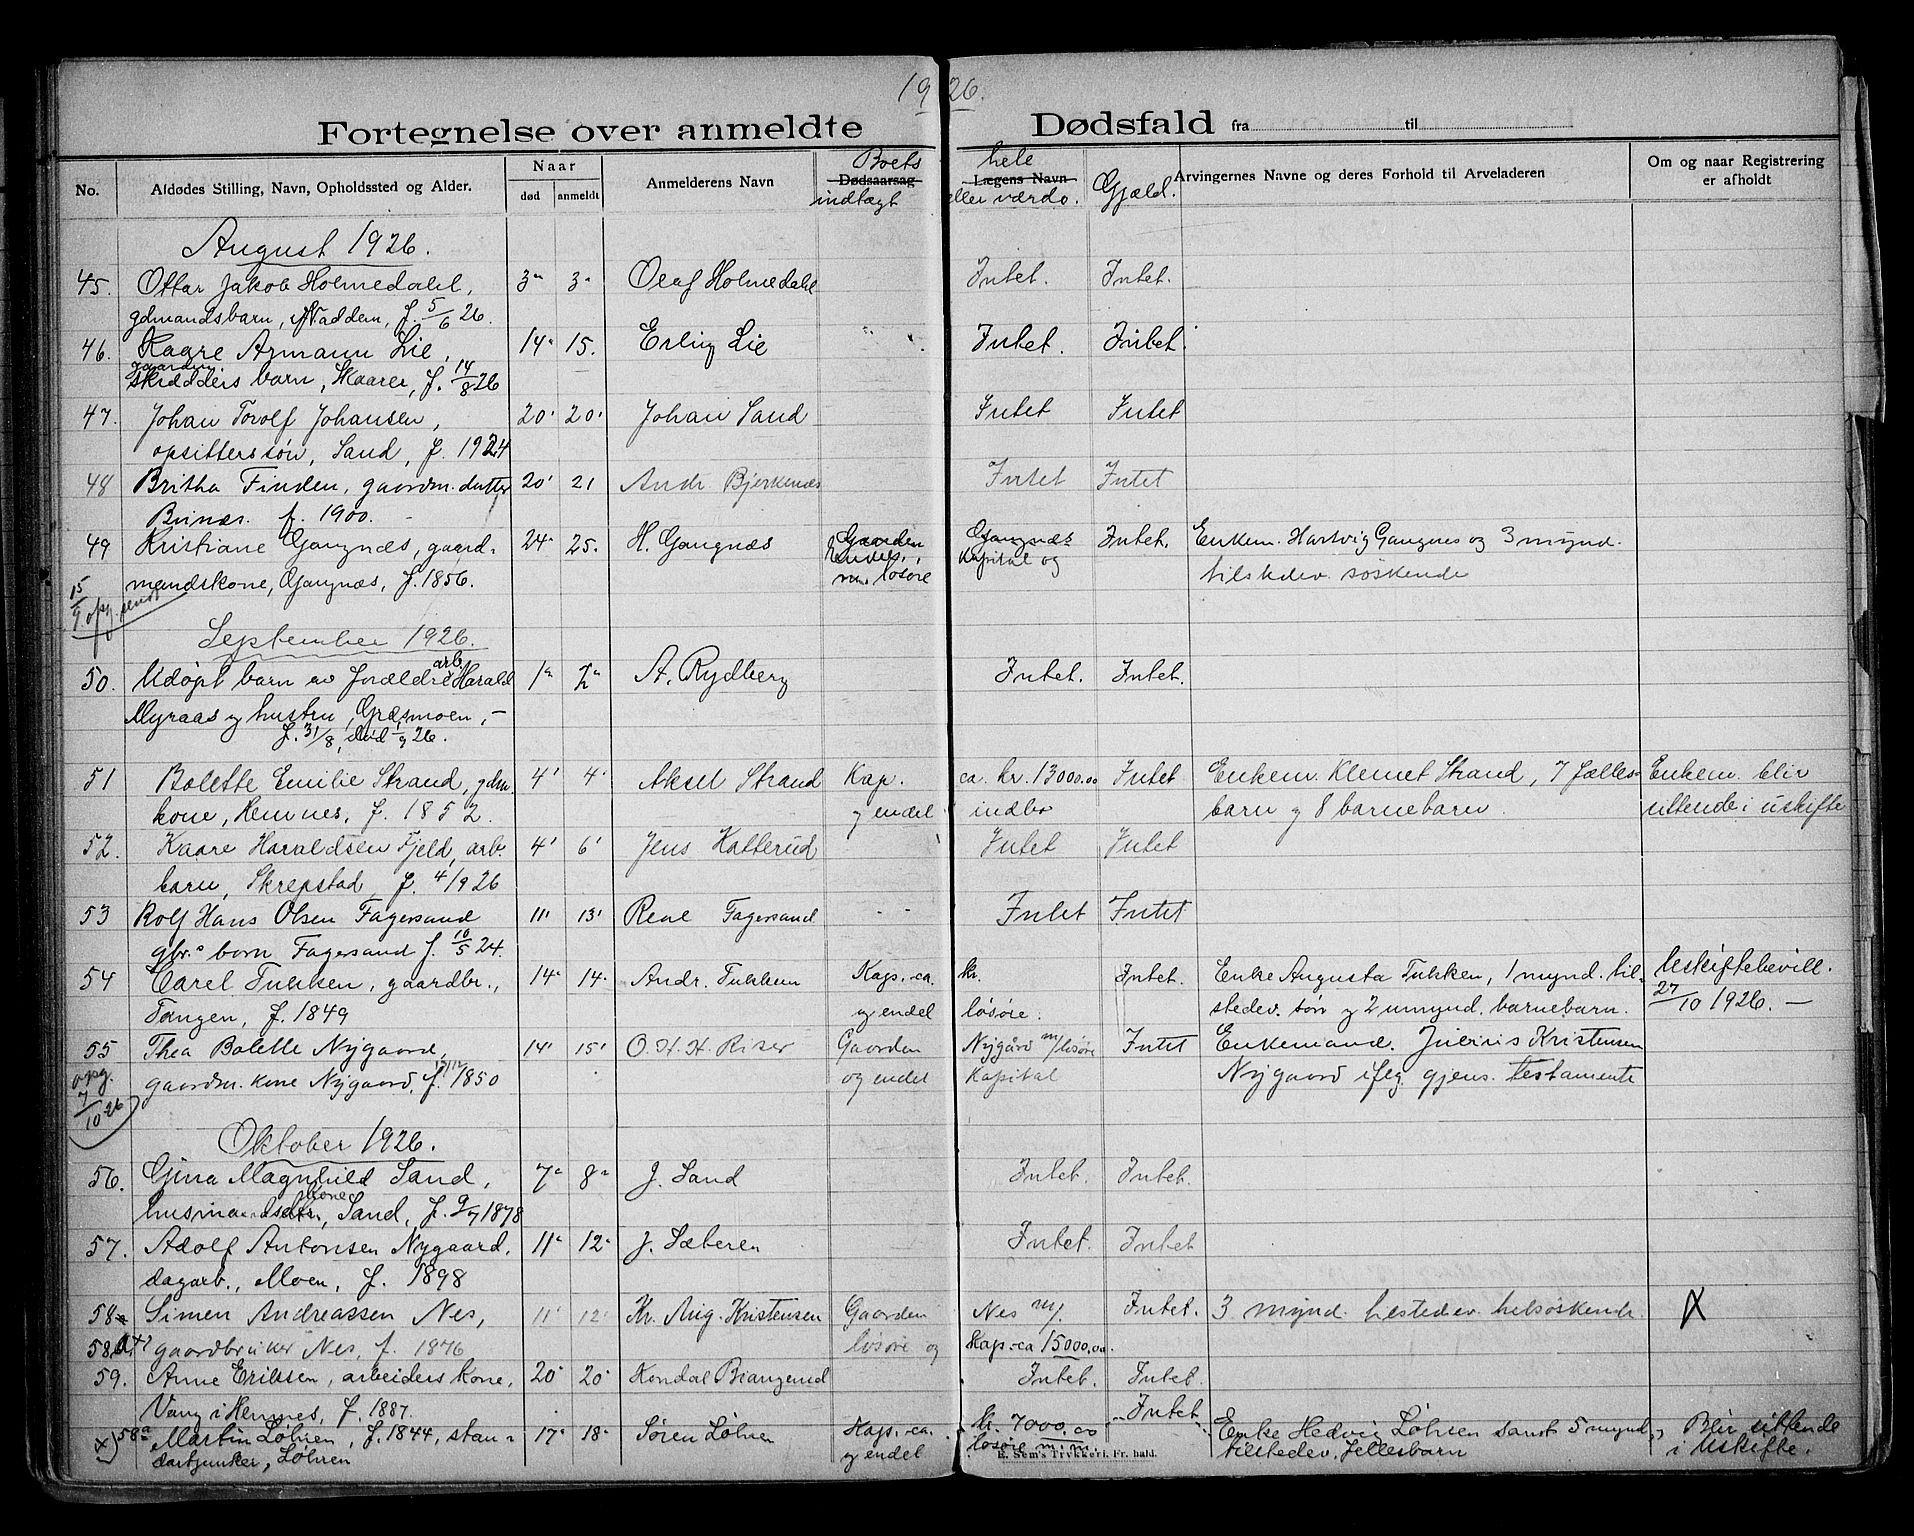 1926.
Fortegnelse over anmeldte Dødsfald fra til
No. Afdødes Stilling, Navn, Opholdssted og Alder. Naar død anmeldt Anmelderens Navn Dødsaarsag Boets indtægt Lægens Navn hele eller værdo. Gjæld. Arvingernes Navne og deres Forhold til Arveladeren Om og naar Registrering er afholdt
August 1926.
45. Ottar Jakob Holmedahl, 3. 3. Olaf Holmedahl Intet. Intet.
gdmandsbarn, Nadden, f. 5/6 26.
46. Kaare Armann Lie, 14. 15. Erling Lie Intet. Intet.
gaarden
skrædders barn, Skaarer, f. 14/8 26
47. Johan Torolf Johansen, 20. 20. Johan Sand Intet Intet
opsitterssøn, Sand, f. 1924
48 Britha Finden, gaardm. datter 20. 21 Andr Bjerkenæs Intet Intet
f. 1900.
49 Kristiane Gangnæs, gaard- 24. 25. H. Gangnæs Gaarden Gangnæs Intet. Enkem. Hartvig Gangnes og 3 mynd.
mandskone, Gangnæs, f. 1856. løsøre kapital og tilstedev. søskende
15/9 opg. sendt
September 1926.
50. Udøpt barn av forældre arb. Harald 1. 2. A. Rydberg Intet. Intet.
Myraas og hustru, Græsmoen, -
f. 31/8, død 1/9 26.
51 Bolette Emilie Strand, gdm. 4. 4. Aksel Strand Kap. ca. kr. 13000.00 Intet Enkem. Klemet Strand, 7 fælles- Enkem. blir
kone, Hemnes, f. 1852. og endel indbo barn og 8 barnebarn. sittende i uskifte
52. Kaare Haraldsen Fjeld, arb. 4. 6. Jens Katterud Intet Intet
barn, Skrepstad, f. 4/9 26
53 Rolf Hans Olsen Fagersand 11. 13. Rene Fagersand Intet Intet
gbr. barn Fagersand f. 10/5 24.
54 Carel Tukken, gaardbr., 14. 14. Andr. Tukken Kap. ca. kr. Intet. Enke Augusta Tukken, 1 mynd. til- Uskiftebevill.
Tangen, f. 1849 og endel løsøre. stedev. søn og 2 umynd. barnebarn. 27/10 1926. -
55 Thea Bolette Nygaard, 14. 15. O. H. H. Riser Gaarden Nygård m/løsøre Intet Enkemand. Julius Kristensen
gaardm. kone Nygaard, f. 1850 og endel Kapital Nygaard iflg. gjens. testamente
opg. 7/10 26
Oktober 1926.
56. Gina Magnhild Sand, 7. 8. J. Sand Intet. Intet.
kone
Sand, f. 9/7 1878
57. Adolf Antonsen Nygaard, 11. 12. J. Sæteren Intet. Intet
dagarb., Moen, f. 1898
58 Simen Andreassen Nes, 11. 12. Kr. Aug. Kristensen Gaarden Nes m/ Intet. 3 mynd. tilstedev. helsøskende. X
58 a x) gaardbruker Nes, f. 1876 løsøre og Kap. ca 15000.00
59. Anne Eriksen, arbeiders kone, 20. 20. Intet. Intet.
Vang i Hemnes, f. 1887.
x) 58 a Martin Løhren, f. 1844, stan- 17. 18. Søren Løhren Kap. ca. kr. 7000.00 Intet Enke Hedvig Løhren samt 5 mynd. Blir sittende
dartjunker, Løhren og endel løsøre m.m. tilstedev. fellesbarn i Uskifte.
E. Sem's Trykkeri, Fr. hald.